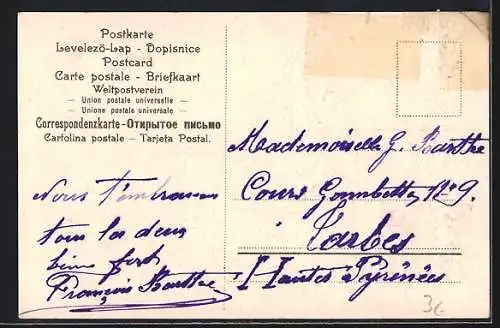 Postkarte
Levelezö-Lap - Dopisnice
Postcard
Carte postale - Briefkaart
Weltpostverein
— Union postale universelle —
— Unione postale universale —
Correspondenzkarte - Открытое письмо
Cartolina postale - Tarjeta Postal.
Mademoiselle G. Barthe
Cours Gambetta, N° 9.
Tarbes
Hautes Pyrénées
Nous t'embrassons
tous les deux
bien fort
François Barthe
3c